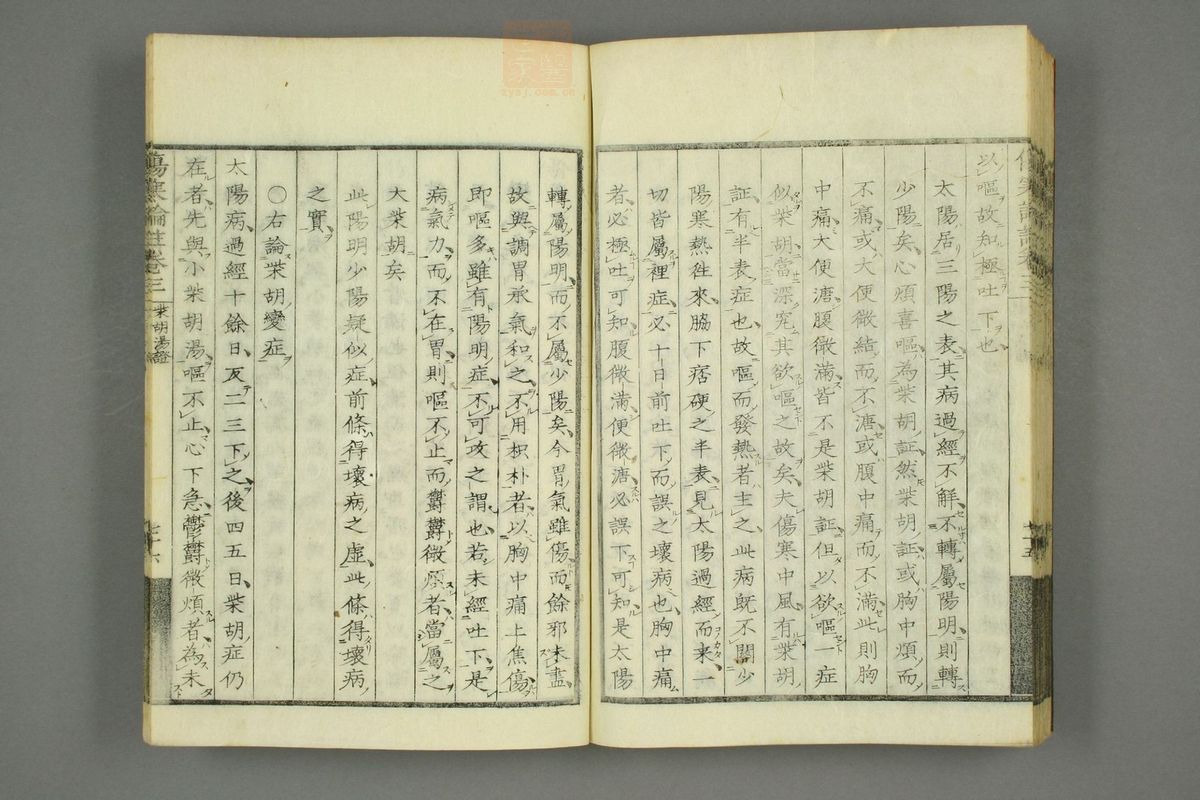 以嘔故知極吐下也
太陽居三陽之表其病過經不解不轉屬陽明則轉
少陽矣心煩喜嘔為柴胡証然柴胡証或胸中煩而
不痛或大便微結而不溏或腹中痛而不滿此則胸
中痛大便溏腹微滿皆不是柴胡証但以欲嘔一症
似柴胡當深究其欲嘔之故矣夫傷寒中風有柴胡
証有半表症也故嘔而發熱者主之此病既不關少
陽寒熱往來脇下痞硬之半表見太陽過經而來一
切皆屬裡症必十日前吐下而誤之壞病也胸中痛
者必極吐可知腹微滿便微溏必誤下可知是太陽
轉屬陽明而不屬少陽矣今胃氣雖傷而餘邪未盡
故與調胃承氣和之不用枳朴者以胸中痛上焦傷
即嘔多雖有陽明症不可攻之謂也若未經吐下是
病氣力而不在胃則嘔不止而鬱鬱微煩者當屬之
大柴胡矣
此陽明少陽疑似症前條得壞病之虛此條得壞病
之實
〇右論柴胡變症
太陽病過經十餘日反二三下之後四五日柴胡症仍
在者先與小柴胡湯嘔不止心下急鬱鬱微煩者為未
傷寒論註卷三
柴胡湯證